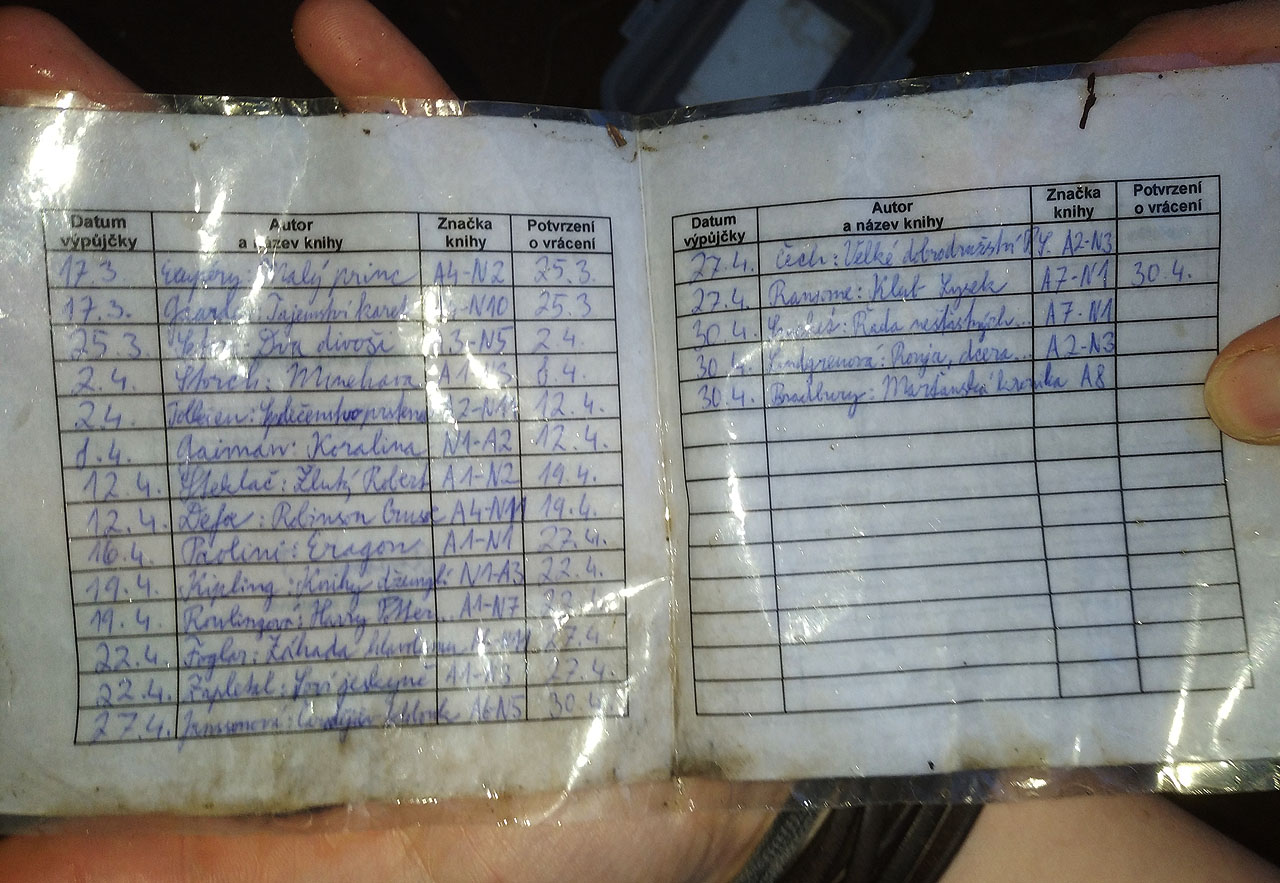 Datum výpůjčky Autor a název knihy Značka knihy Potvrzení o vrácení
17.3. Exupéry: Malý princ A4-N2 25.3.
17.3. Gaarder: Tajemství karet -N10 25.3
25.3. Dva divoši A3-N5 2.4.
2.4. Štorch: Minehava A1-N3 8.4.
2.4. Tolkien: Společenstvo prstenu A2-N1 12.4.
8.4. Gaiman: Koralina N1-A2 12.4.
12.4. Steklač: Žlutý Robert A1-N2 19.4.
12.4. Defoe: Robinson Crusoe A4-N11 19.4.
16.4. Paolini: Eragon A1-N1 27.4.
19.4. Kipling: Knihy džunglí N1-A3 22.4.
19.4. Rowlingová: Harry Potter... A1-N7 22.4.
22.4. Foglar: Záhada hlavolamu 27.4.
22.4. Zapletal: Lovci jeskyně A1-N3 27.4.
27.4. Janssonová: A6-N5 30.4.
Datum výpůjčky Autor a název knihy Značka knihy Potvrzení o vrácení
27.4. Čech: Velké dobrodružství P.S. A2-N3
27.4. Ransome: Klub Lysek A7-N1 30.4.
30.4. Řada nešťastných... A7-N1
30.4. Lindgrenová: Ronja, dcera... A2-N3
30.4. Bradbury: Marťanská kronika A8